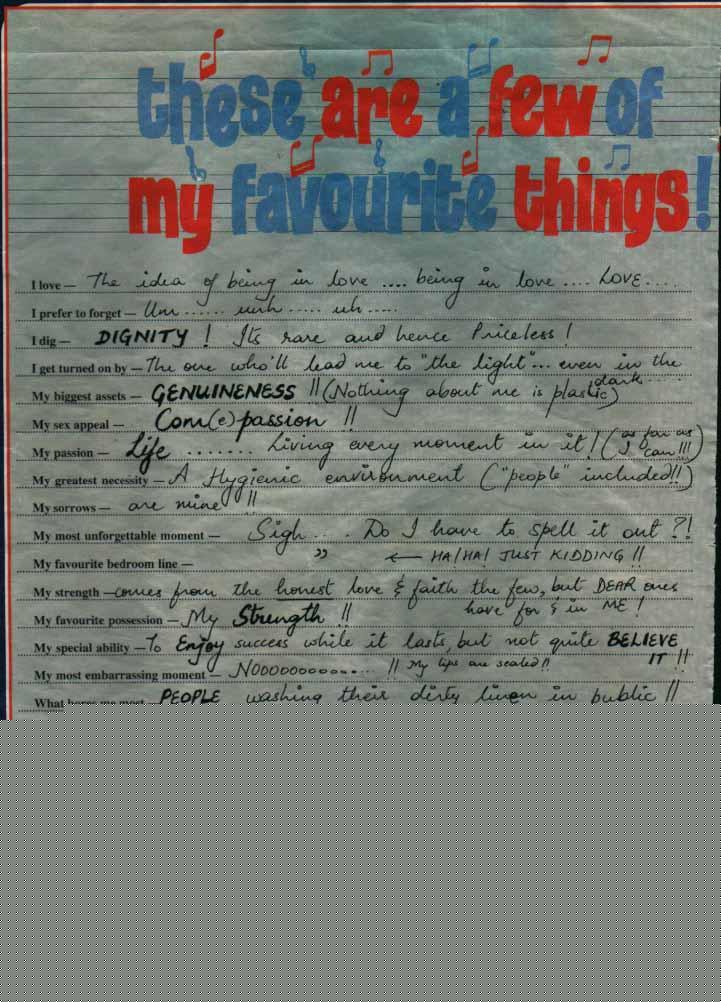 these are a few of
my favourite things!
I love — The idea of being in love .... being in love .... LOVE....
I prefer to forget — Um ...... umh ..... uh .....
I dig — DIGNITY ! Its rare and hence Priceless !
I get turned on by — The one who'll lead me to "the light"... even in the
dark....
My biggest assets — GENUINENESS !! (Nothing about me is plastic)
My sex appeal — Com(e)passion !!
My passion — Life ....... Living every moment in it! (as far as
I can!!!)
My greatest necessity — A Hygienic environment ("people" included!!)
My sorrows — are mine !!
My most unforgettable moment — Sigh .... Do I have to spell it out ?!
My favourite bedroom line — " ← HA!HA! JUST KIDDING !!
My strength — comes from the honest love & faith the few, but DEAR ones
have for & in ME !
My favourite possession — My Strength !!
My special ability — To Enjoy success while it lasts, but not quite BELIEVE
IT !!
My most embarrassing moment — NOooooooooo.... !! My lips are sealed!!
What bores me most — PEOPLE washing their dirty linen in public !!